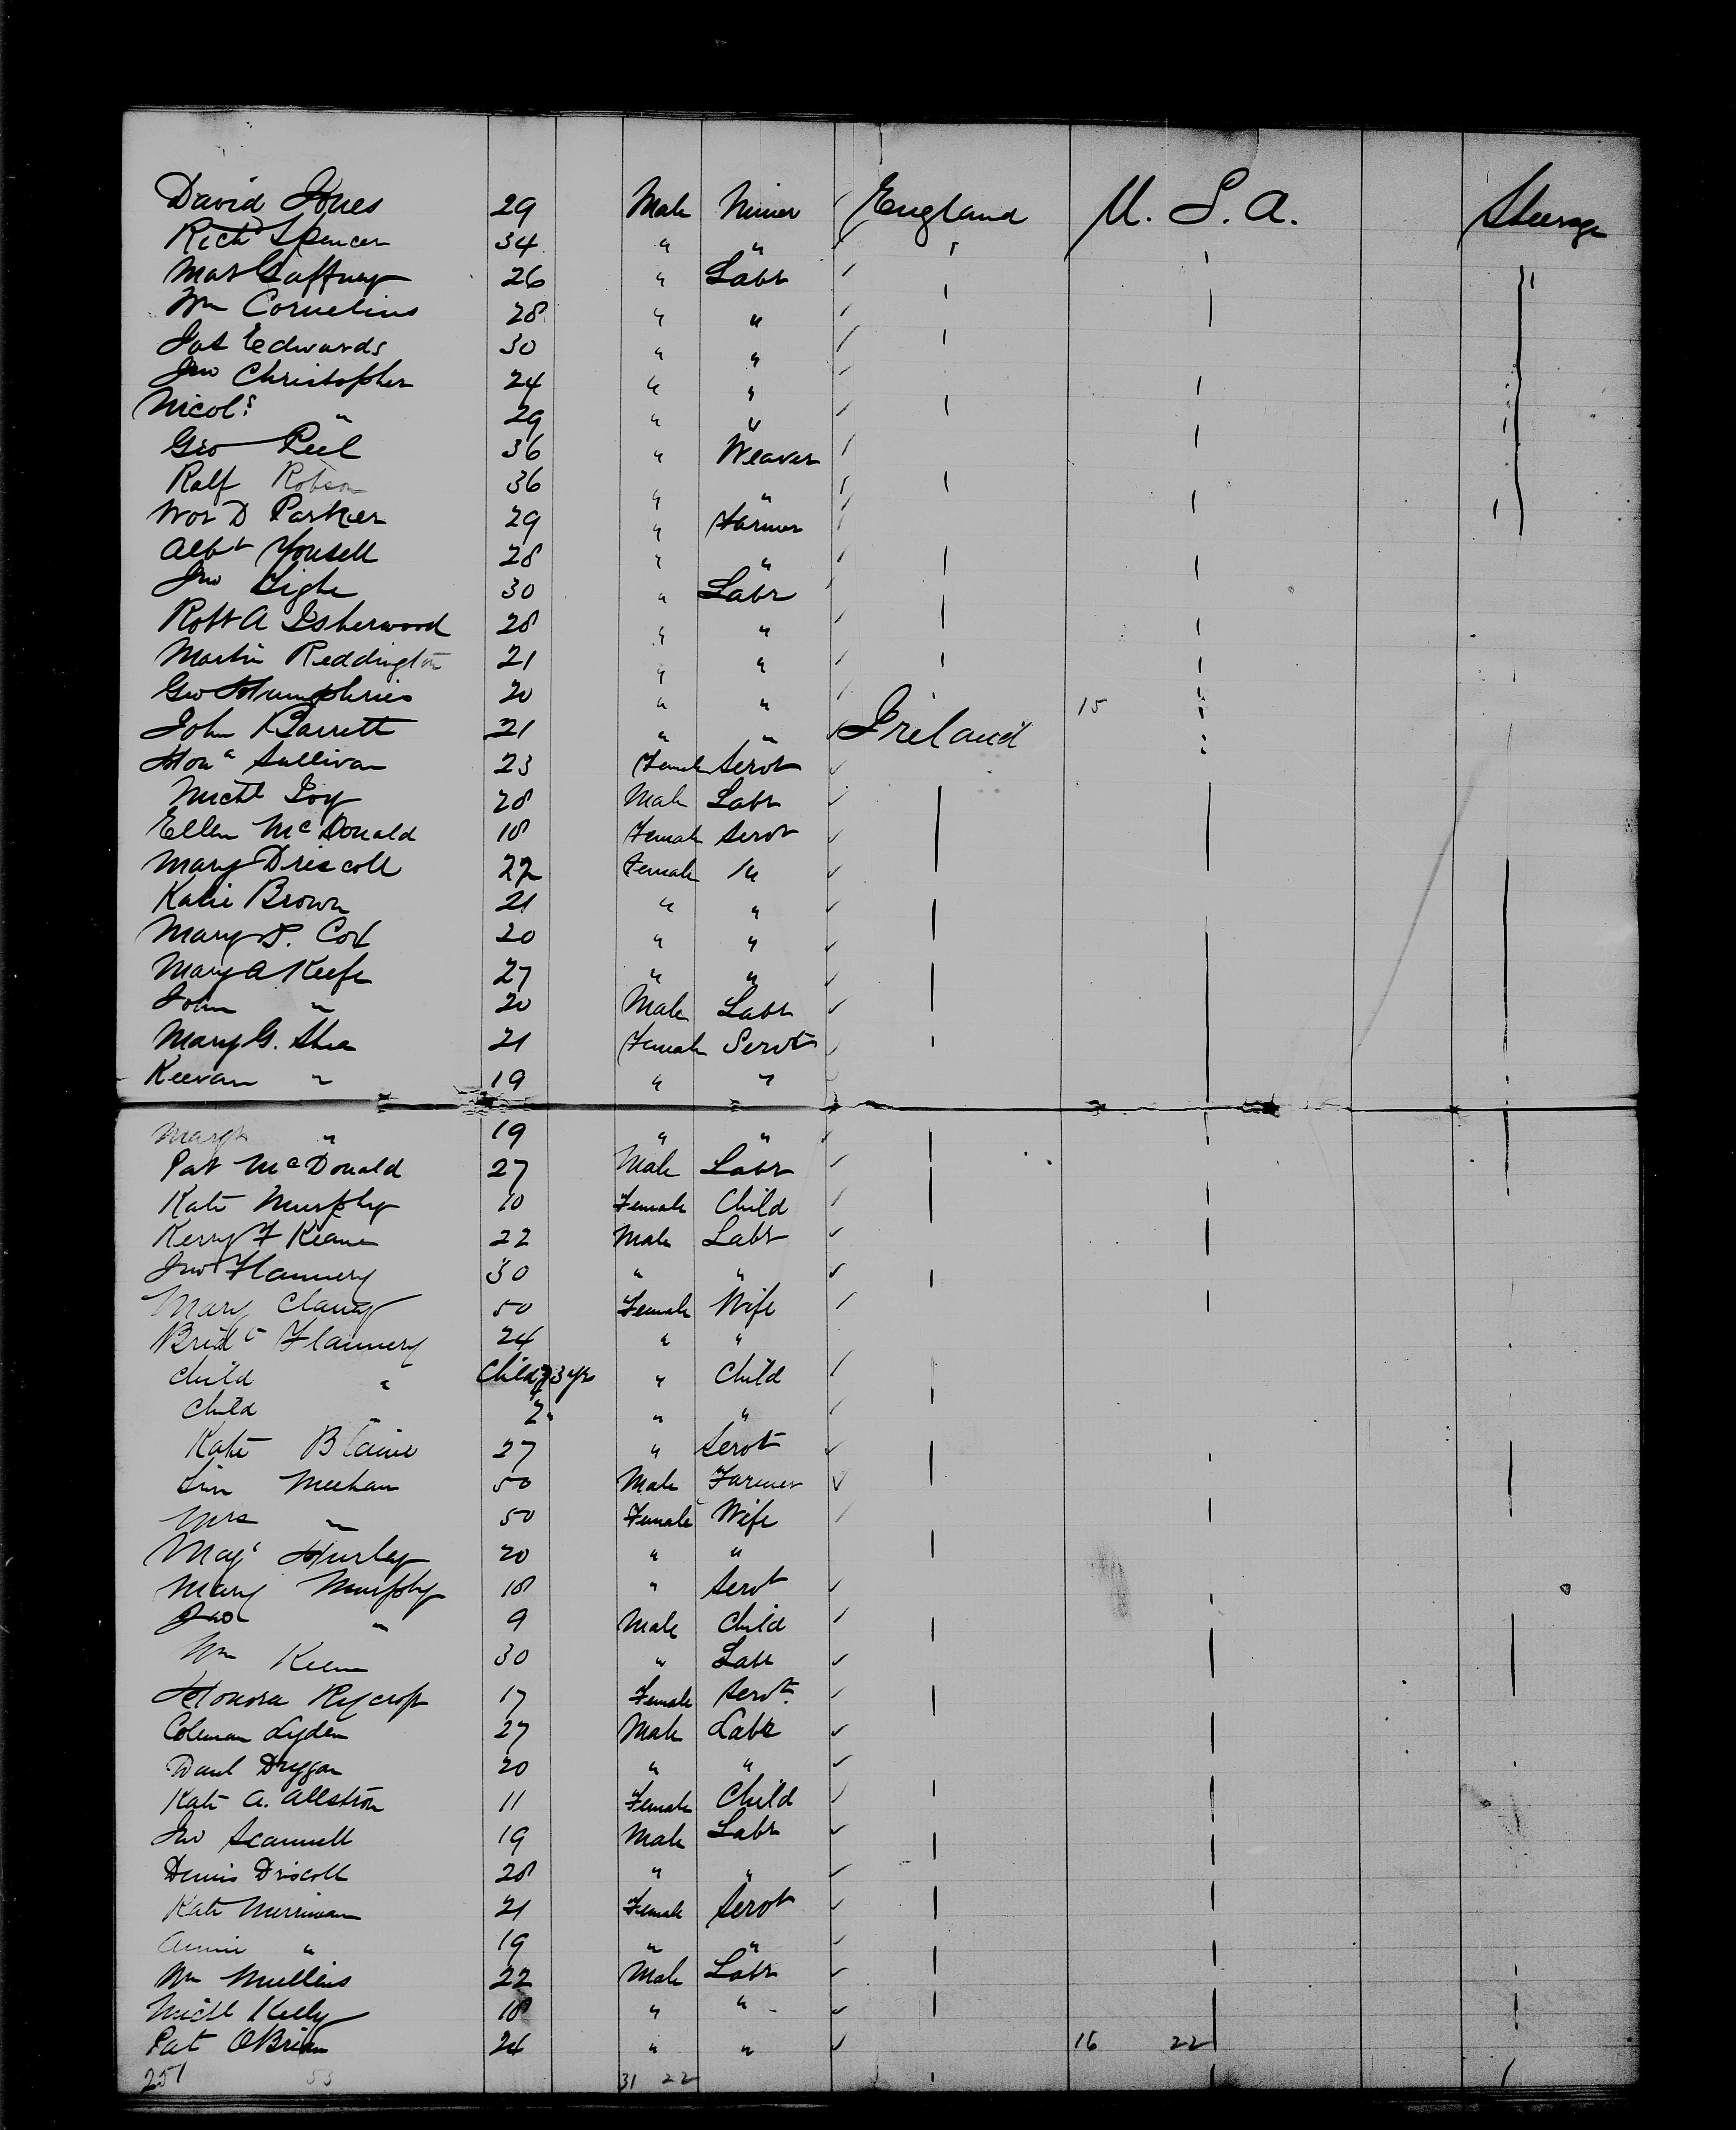 David Jones 29 Male Miner England U. S. A. Steerage
Richd Spencer 34 " "
Mat Gaffney 26 " Labr
Wm Cornelius 28 " "
Jas Edwards 30 " "
Jno Christopher 24 " "
Nicols " 29 " "
Geo Peel 36 " Weaver
Ralf Robson 36 " "
D Parker 29 " Farmer
Albt 28 " "
Jno Tighe 30 " Labr
Robt A Isherwood 28 " "
Martin Reddington 21 " "
Geo Humphries 20 " " 15
John Barrett 21 " " Ireland
Hona Sullivan 23 Female Servt
Michl 28 Male Labr
Ellen McDonald 18 Female Servt
Mary Driscoll 22 Female "
Katie Brown 21 " "
Mary Cox 20 " "
Mary A Keefe 27 " "
John " 20 Male Labr
Mary G. Shea 21 Female Servt
Keevan " 19 " "
Margt " 19 " "
Pat McDonald 27 Male Labr
Kate Murphy 10 Female Child
Kerry F Keane 22 Male Labr
Jno Flannery 30 " "
Mary Clancy 50 Female Wife
Bridt Flannery 24 " "
Child " Child 3 yrs " Child
Child " " 2 " " "
Kate Blaine 27 " Servt
Meehan 50 Male Farmer
Mrs " 50 Female Wife
Magt Hurley 20 " "
Mary Murphy 18 " Servt
Jno " 9 Male Child
Wm Keene 30 " Labr
Honora Rycroft 17 Female Servt.
Coleman Lyden 27 Male Labr
Danl Duggan 20 " "
Kate A. Allston 11 Female Child
Jno Scannell 19 Male Labr
Dennis Driscoll 28 " "
Kate Merriman 21 Female Servt
Annie " 19 " "
Wm Mullins 22 Male Labr
Michl Kelly 18 " "
Pat OBrien 24 " " 16 22
251 53 31 22